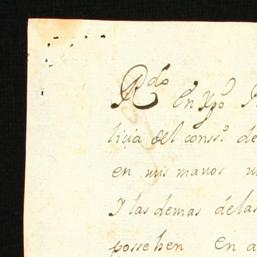 Rdo En Xpo
licia del conss.º de
en mis manos
Y las demas delas
possehen en a